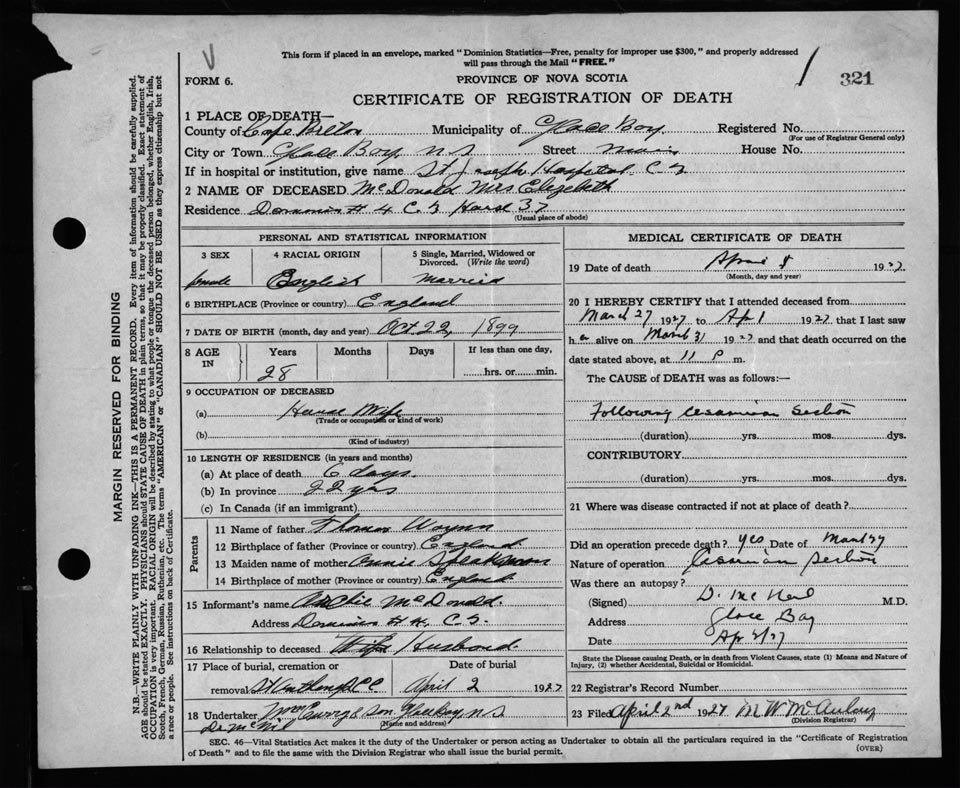 This form if placed in an envelope, marked "Dominion Statistics—Free, penalty for improper use $300," and properly addressed
will pass through the Mail "FREE."
FORM 6.
PROVINCE OF NOVA SCOTIA
321
CERTIFICATE OF REGISTRATION OF DEATH
1 PLACE OF DEATH—
County of Cape Breton Municipality of Glace Bay. Registered No.
(For use of Registrar General only)
City or Town Glace Bay, N S Street Main House No.
If in hospital or institution, give name St Joseph Hospital. C B
2 NAME OF DECEASED McDonald Mrs Elizebeth
Residence Dominion # 4 C. B House 37
(Usual place of abode)
PERSONAL AND STATISTICAL INFORMATION
3 SEX
4 RACIAL ORIGIN
5 Single, Married, Widowed or
Divorced. (Write the word)
female English married
6 BIRTHPLACE (Province or country) England
7 DATE OF BIRTH (month, day and year) Oct 22, 1899
8 AGE IN
Years Months Days If less than one day,
28 hrs. or min.
9 OCCUPATION OF DECEASED
(a) House Wife
(Trade or occupation or kind of work)
(b)
(Kind of industry)
10 LENGTH OF RESIDENCE (in years and months)
(a) At place of death 6 days.
(b) In province 22 yrs
(c) In Canada (if an immigrant)
Parents
11 Name of father Thomas
12 Birthplace of father (Province or country) England.
13 Maiden name of mother Annie Speakman
14 Birthplace of mother (Province or country) England
15 Informant's name Archie McDonald.
Address Dominion # 4, C. B.
16 Relationship to deceased Wife Husband.
17 Place of burial, cremation or Date of burial
removal St Anthony C C April 2 1927
18 Undertaker son Glace Bay N S
(Name and address)
Dr McNil
MEDICAL CERTIFICATE OF DEATH
19 Date of death April 1 1927.
(Month, day and year)
20 I HEREBY CERTIFY that I attended deceased from
March 27 1927 to Apr 1 1927 that I last saw
h er alive on March 31 1927 and that death occurred on the
date stated above, at 11 P m.
The CAUSE of DEATH was as follows:—
Following Cesarian Section
(duration) yrs. mos. dys.
CONTRIBUTORY
(duration) yrs. mos. dys.
21 Where was disease contracted if not at place of death?
Did an operation precede death? yes Date of Mar 27
Nature of operation Cesarian Section
Was there an autopsy?
(Signed) D. McNeil M.D.
Address Glace Bay
Date Apr 2/27
State the Disease causing Death, or in death from Violent Causes, state (1) Means and Nature of
Injury, (2) whether Accidental, Suicidal or Homicidal.
22 Registrar's Record Number
23 Filed April 2nd 1927 M W McAulay
(Division Registrar)
SEC. 46—Vital Statistics Act makes it the duty of the Undertaker or person acting as Undertaker to obtain all the particulars required in the "Certificate of Registration
of Death" and to file the same with the Division Registrar who shall issue the burial permit. (OVER)
MARGIN RESERVED FOR BINDING
N.B.—WRITE PLAINLY WITH UNFADING INK—THIS IS A PERMANENT RECORD. Every item of information should be carefully supplied.
AGE should be stated EXACTLY. PHYSICIANS should STATE CAUSE OF DEATH in plain terms, so that it may be properly classified. Exact statement of
OCCUPATION is very important. RACIAL ORIGIN will be described by stating to what people or tongue the deceased person belonged, whether English, Irish,
Scotch, French, German, Russian, Ruthenian, etc. The terms "AMERICAN" or "CANADIAN" SHOULD NOT BE USED as they express citizenship but not
a race or people. See instructions on back of Certificate.